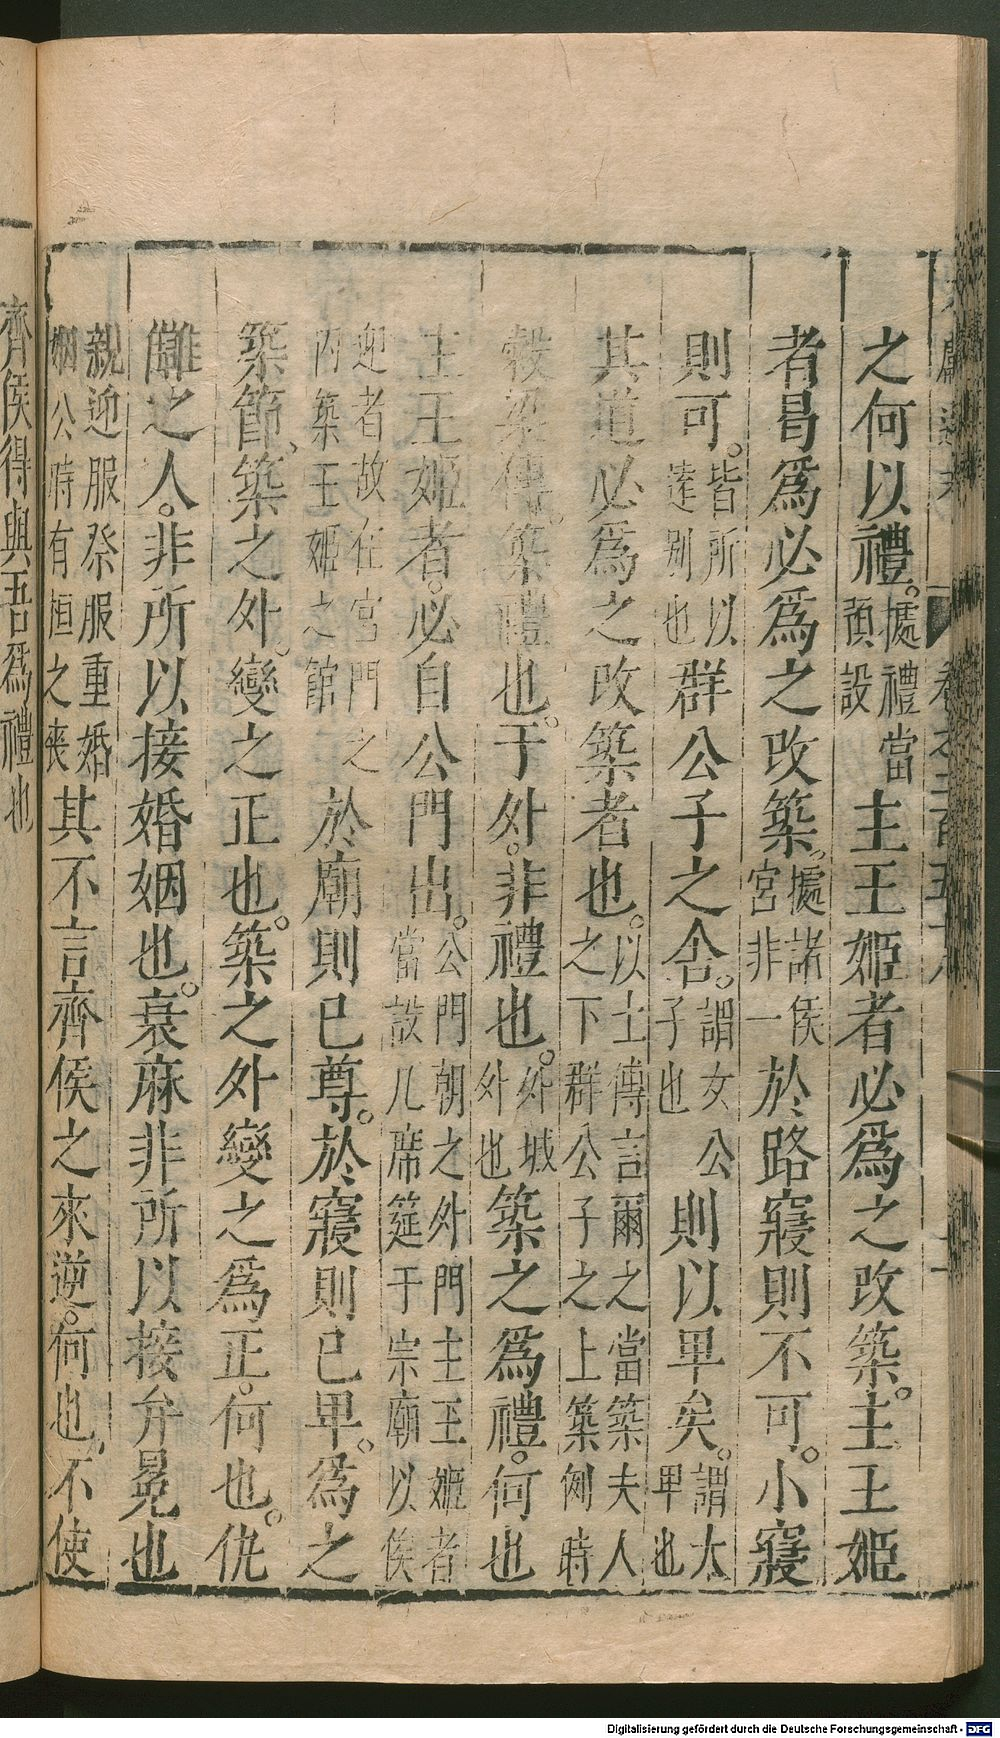 之何以禮。據禮當預設主王姬者必爲之改築。主王姬
者曷爲必爲之改築。據諸侯宮非一於路寢則不可。小寢
則可。皆所以遠別也群公子之舍。謂女公子也則以卑矣。謂太卑也
其道必爲之改築者也。以士傳言爾之當築夫人之下群公子之上築例時
穀梁傳。築禮也。于外。非禮也。外城外也築之爲禮。何也
主王姬者。必自公門出。公門朝之外門主王姬者當設几席筵于宗廟以俟
迎者故在宮門之內築王姬之館於廟則已尊。於寢則已卑。爲之
築節、築之外。變之正也。築之外變之爲正。何也。仇
讎之人。非所以接婚姻也。衰麻非所以接弁冕也
親迎服祭服重婚姻公時有桓之喪其不言齊侯之來逆。何也、不使
齊侯得與吾爲禮也
Digitalisierung gefördert durch die Deutsche Forschungsgemeinschaft - DFG